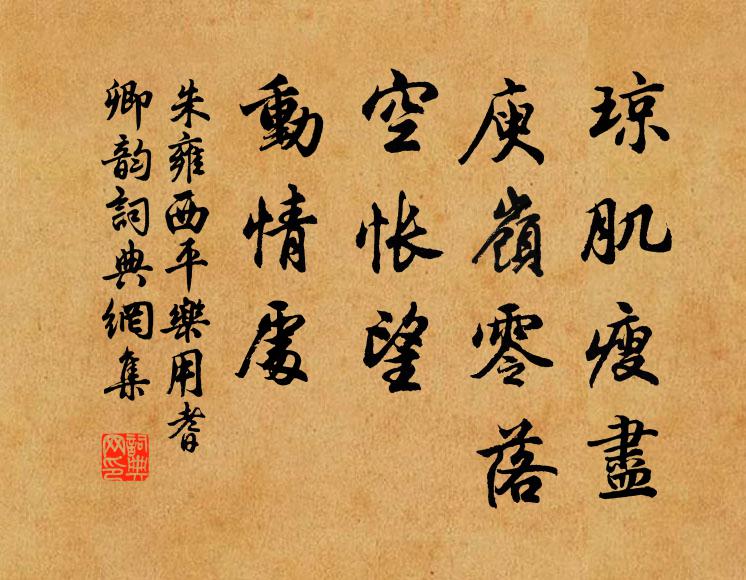 琼肌瘦盡
庾嶺零落
空悵望
動情處
朱雍西平樂用耆
卿韵詞典網集
詞典网印